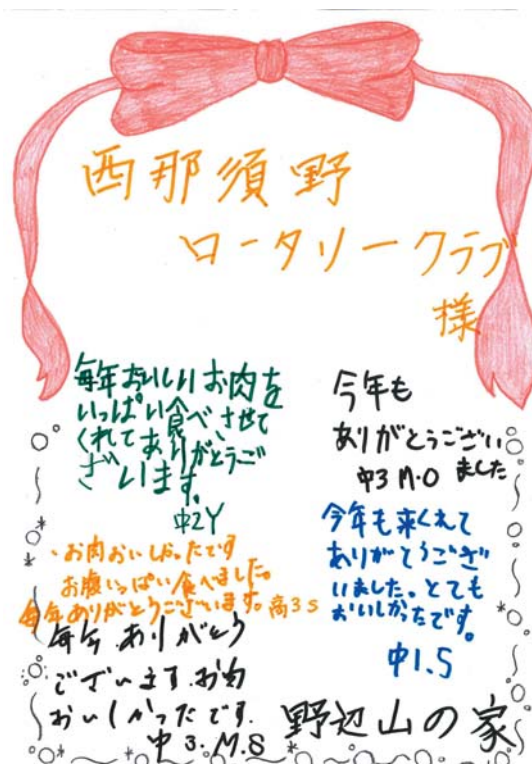 西那須野
ロータリークラブ
様
毎年おいしいお肉を
いっぱい食べさせて
くれてありがとうご
ざいます。
中2Y
今年も
ありがとうござい
ました
中3 M.O
お肉おいしかったです
お腹いっぱい食べました。
毎年ありがとうございます。高3 S
今年も来くれて
ありがとうござ
いました。とても
おいしかったです。
中1.S
毎年.ありがとう
ございます.お肉
おいしかったです.
中3.M.S
野辺山の家